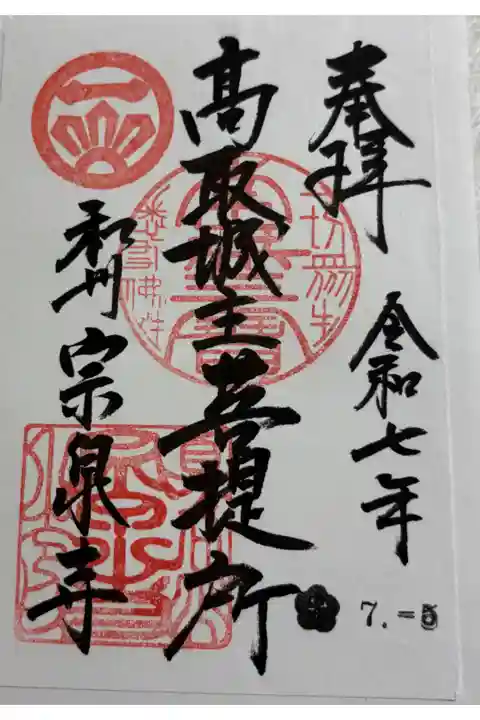 奉拝
令和七年
7. -5
高取城主菩提所
和州 宗泉寺